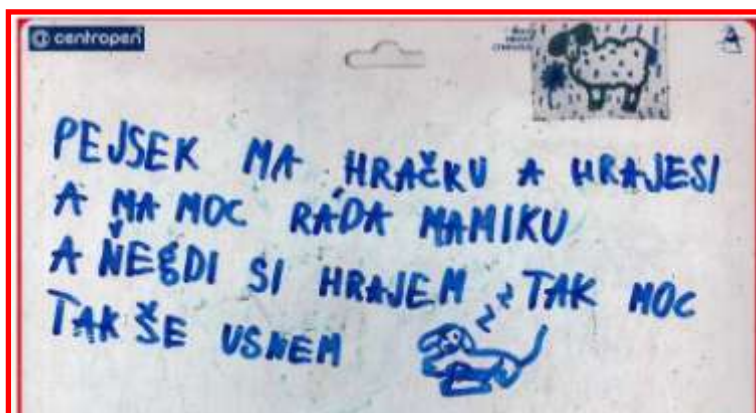 centropen
PEJSEK MA HRAČKU A HRAJESI
A MA MOC RÁDA MAMIKU
A ŇEGDI SI HRAJEM TAK MOC
TAK ŠE USNEM
z z